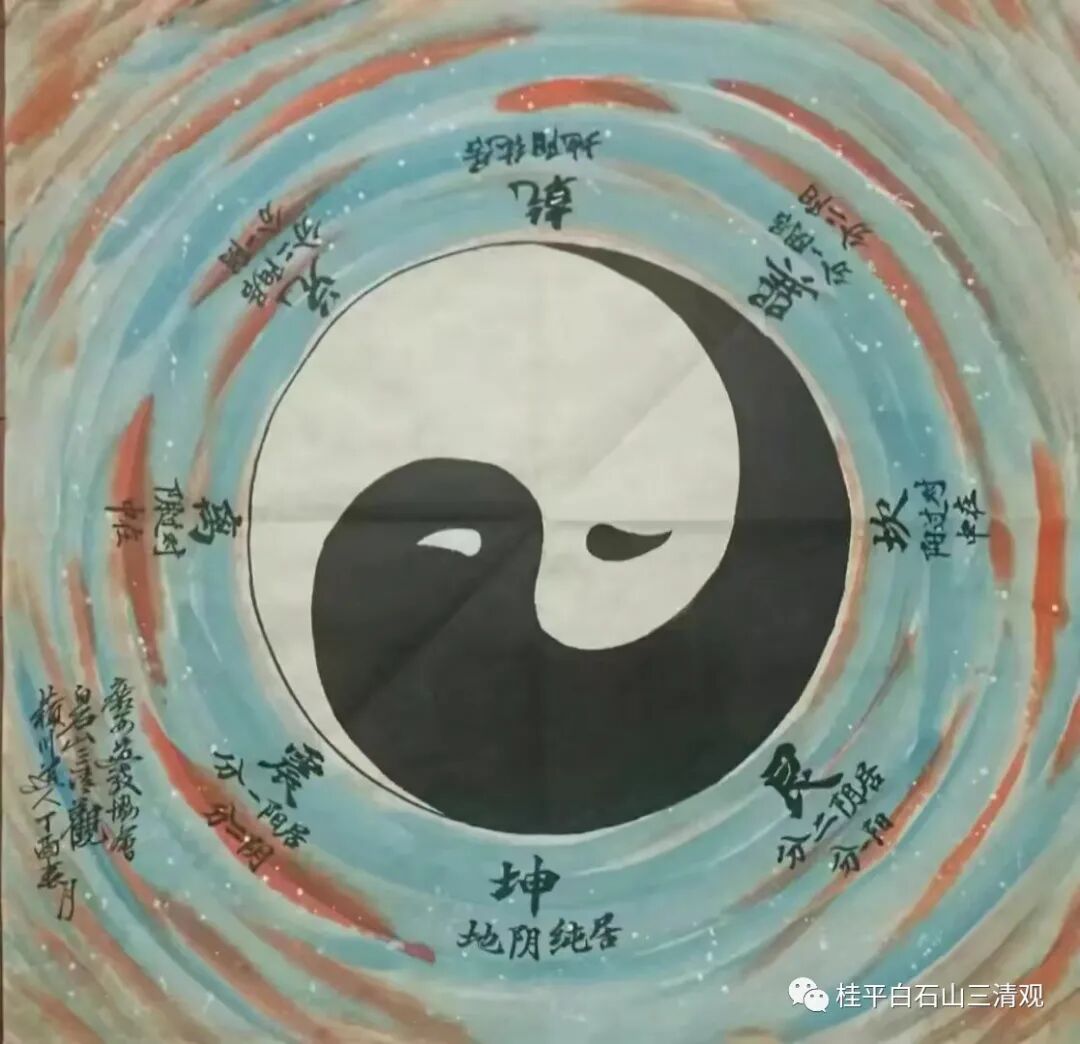 乾
地阳纯居
巽
分一阴居
分二阳
坎
阳过对
中在
艮
分二阴居
分一阳
坤
地阴纯居
震
分一阳居
分二阴
离
阴过对
中在
兑
分二阳居
分一阴
白石山三清觀
川道人丁酉春月
桂平白石山三清观